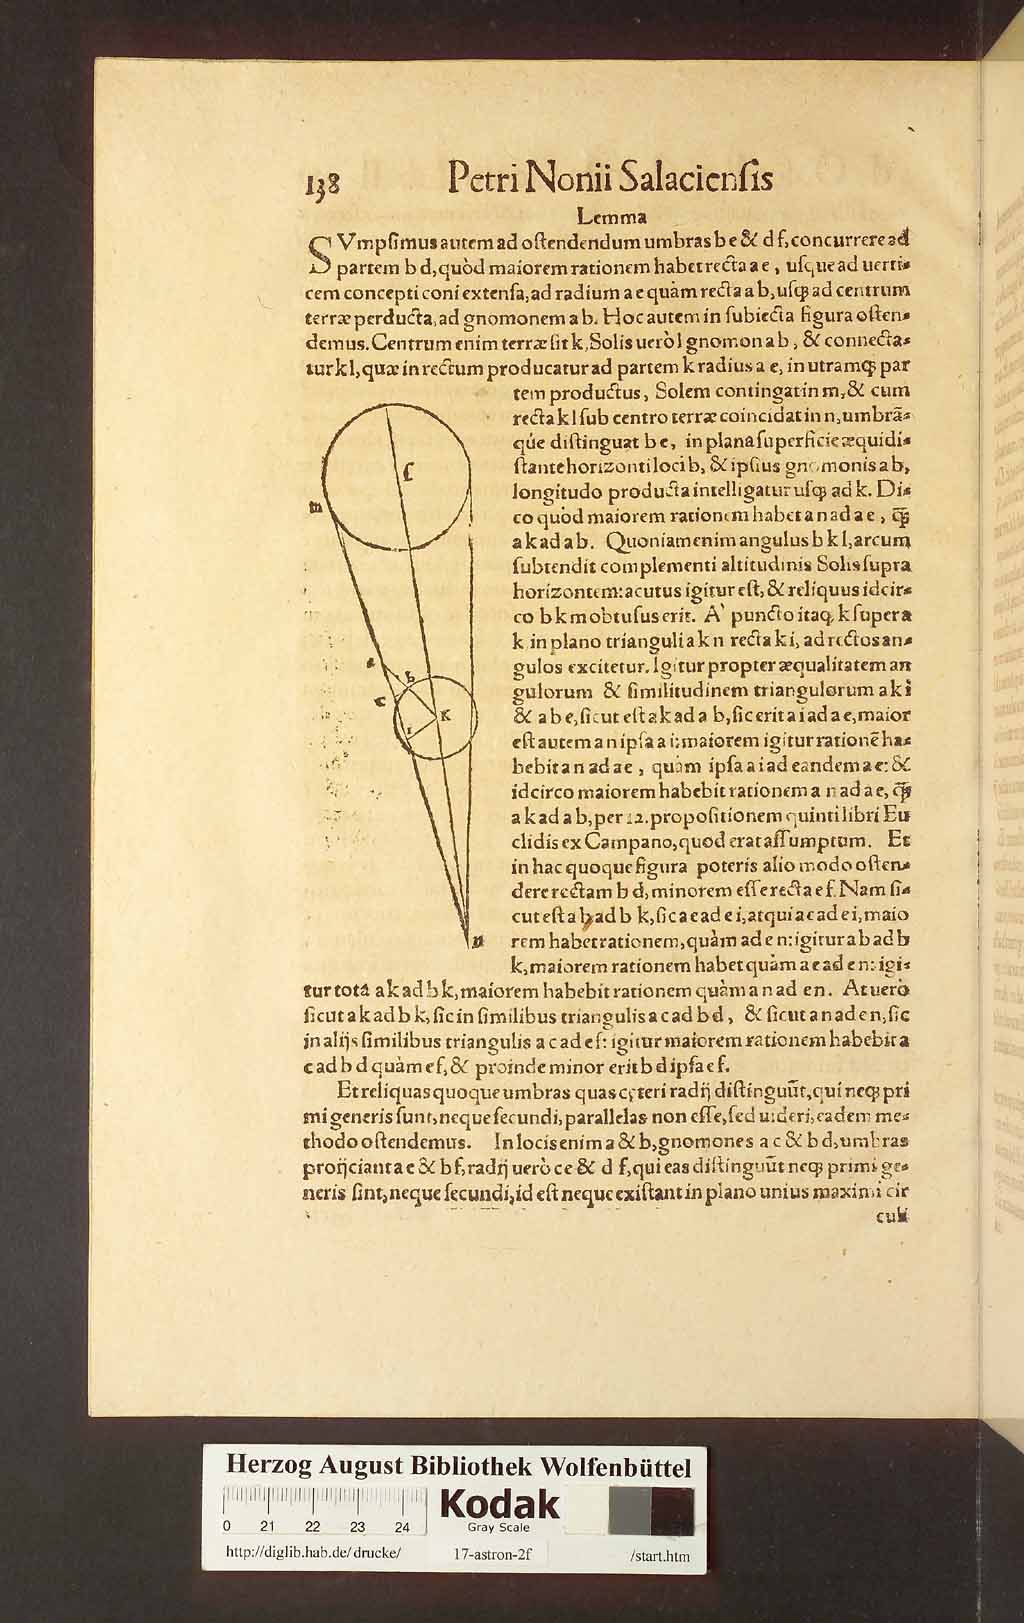 138
Petri Nonii Salaciensis
Lemma
SVmpsimus autem ad ostendendum umbras b e & d f, concurrere ad
partem b d, quòd maiorem rationem habet recta a e, usque ad uerti-
cem concepti coni extensa, ad radium a e quàm recta a b, usq; ad centrum
terræ perducta, ad gnomonem a b. Hoc autem in subiecta figura osten-
demus. Centrum enim terræ sit k, Solis uerò l gnomon a b, & connecta-
tur k l, quæ in rectum producatur ad partem k radius a e, in utramq; par
tem productus, Solem contingat in m, & cum
recta k l sub centro terræ coincidat in n, umbrã-
qúe distinguat b e, in plana superficie æquidi-
stante horizonti loci b, & ipsius gnomonis a b,
longitudo producta intelligatur usq; ad k. Di-
co quòd maiorem rationem habet a n ad a e, q̃
a k ad a b. Quoniam enim angulus b k l, arcum
subtendit complementi altitudinis Solis supra
horizontem: acutus igitur est, & reliquus idcir-
co b k m obtusus erit. A' puncto itaq; k super a
k in plano trianguli a k n recta k i, ad rectos an-
gulos excitetur. Igitur propter æqualitatem an
gulorum & similitudinem triangulorum a k i
& a b e, sicut est a k ad a b, sic erit a i ad a e, maior
est autem a n ipsa a i: maiorem igitur rationẽ ha-
bebit a n ad a e, quàm ipsa a i ad eandem a e: &
idcirco maiorem habebit rationem a n ad a e, q̃
a k ad a b, per 12. propositionem quinti libri Eu
clidis ex Campano, quod erat assumptum. Et
in hac quoque figura poteris alio modo osten-
dere rectam b d, minorem esse recta e f. Nam si-
cut est a b ad b k, sic a e ad e i, atqui a e ad e i, maio
rem habet rationem, quàm ad e n: igitur a b ad b
k, maiorem rationem habet quàm a e ad e n: igi-
tur tota a k ad b k, maiorem habebit rationem quàm a n ad e n. At uerò
sicut a k ad b k, sic in similibus triangulis a c ad b d, & sicut a n ad e n, sic
in alijs similibus triangulis a c ad e f: igitur maiorem rationem habebit a
c ad b d quàm e f, & proinde minor erit b d ipsa e f.
Et reliquas quoque umbras quas cęteri radij distinguũt, qui neq; pri
mi generis sunt, neque secundi, parallelas non esse, sed uideri, eadem me-
thodo ostendemus. In locis enim a & b, gnomones a c & b d, umbras
proijciant a e & b f, radij uerò c e & d f, qui eas distinguũt neq; primi ge-
neris sint, neque secundi, id est neque existant in plano unius maximi cir
culi
l
m
a
b
e
K
i
n
Herzog August Bibliothek Wolfenbüttel
0 21 22 23 24
Kodak
Gray Scale
http://diglib.hab.de/drucke/
17-astron-2f
/start.htm